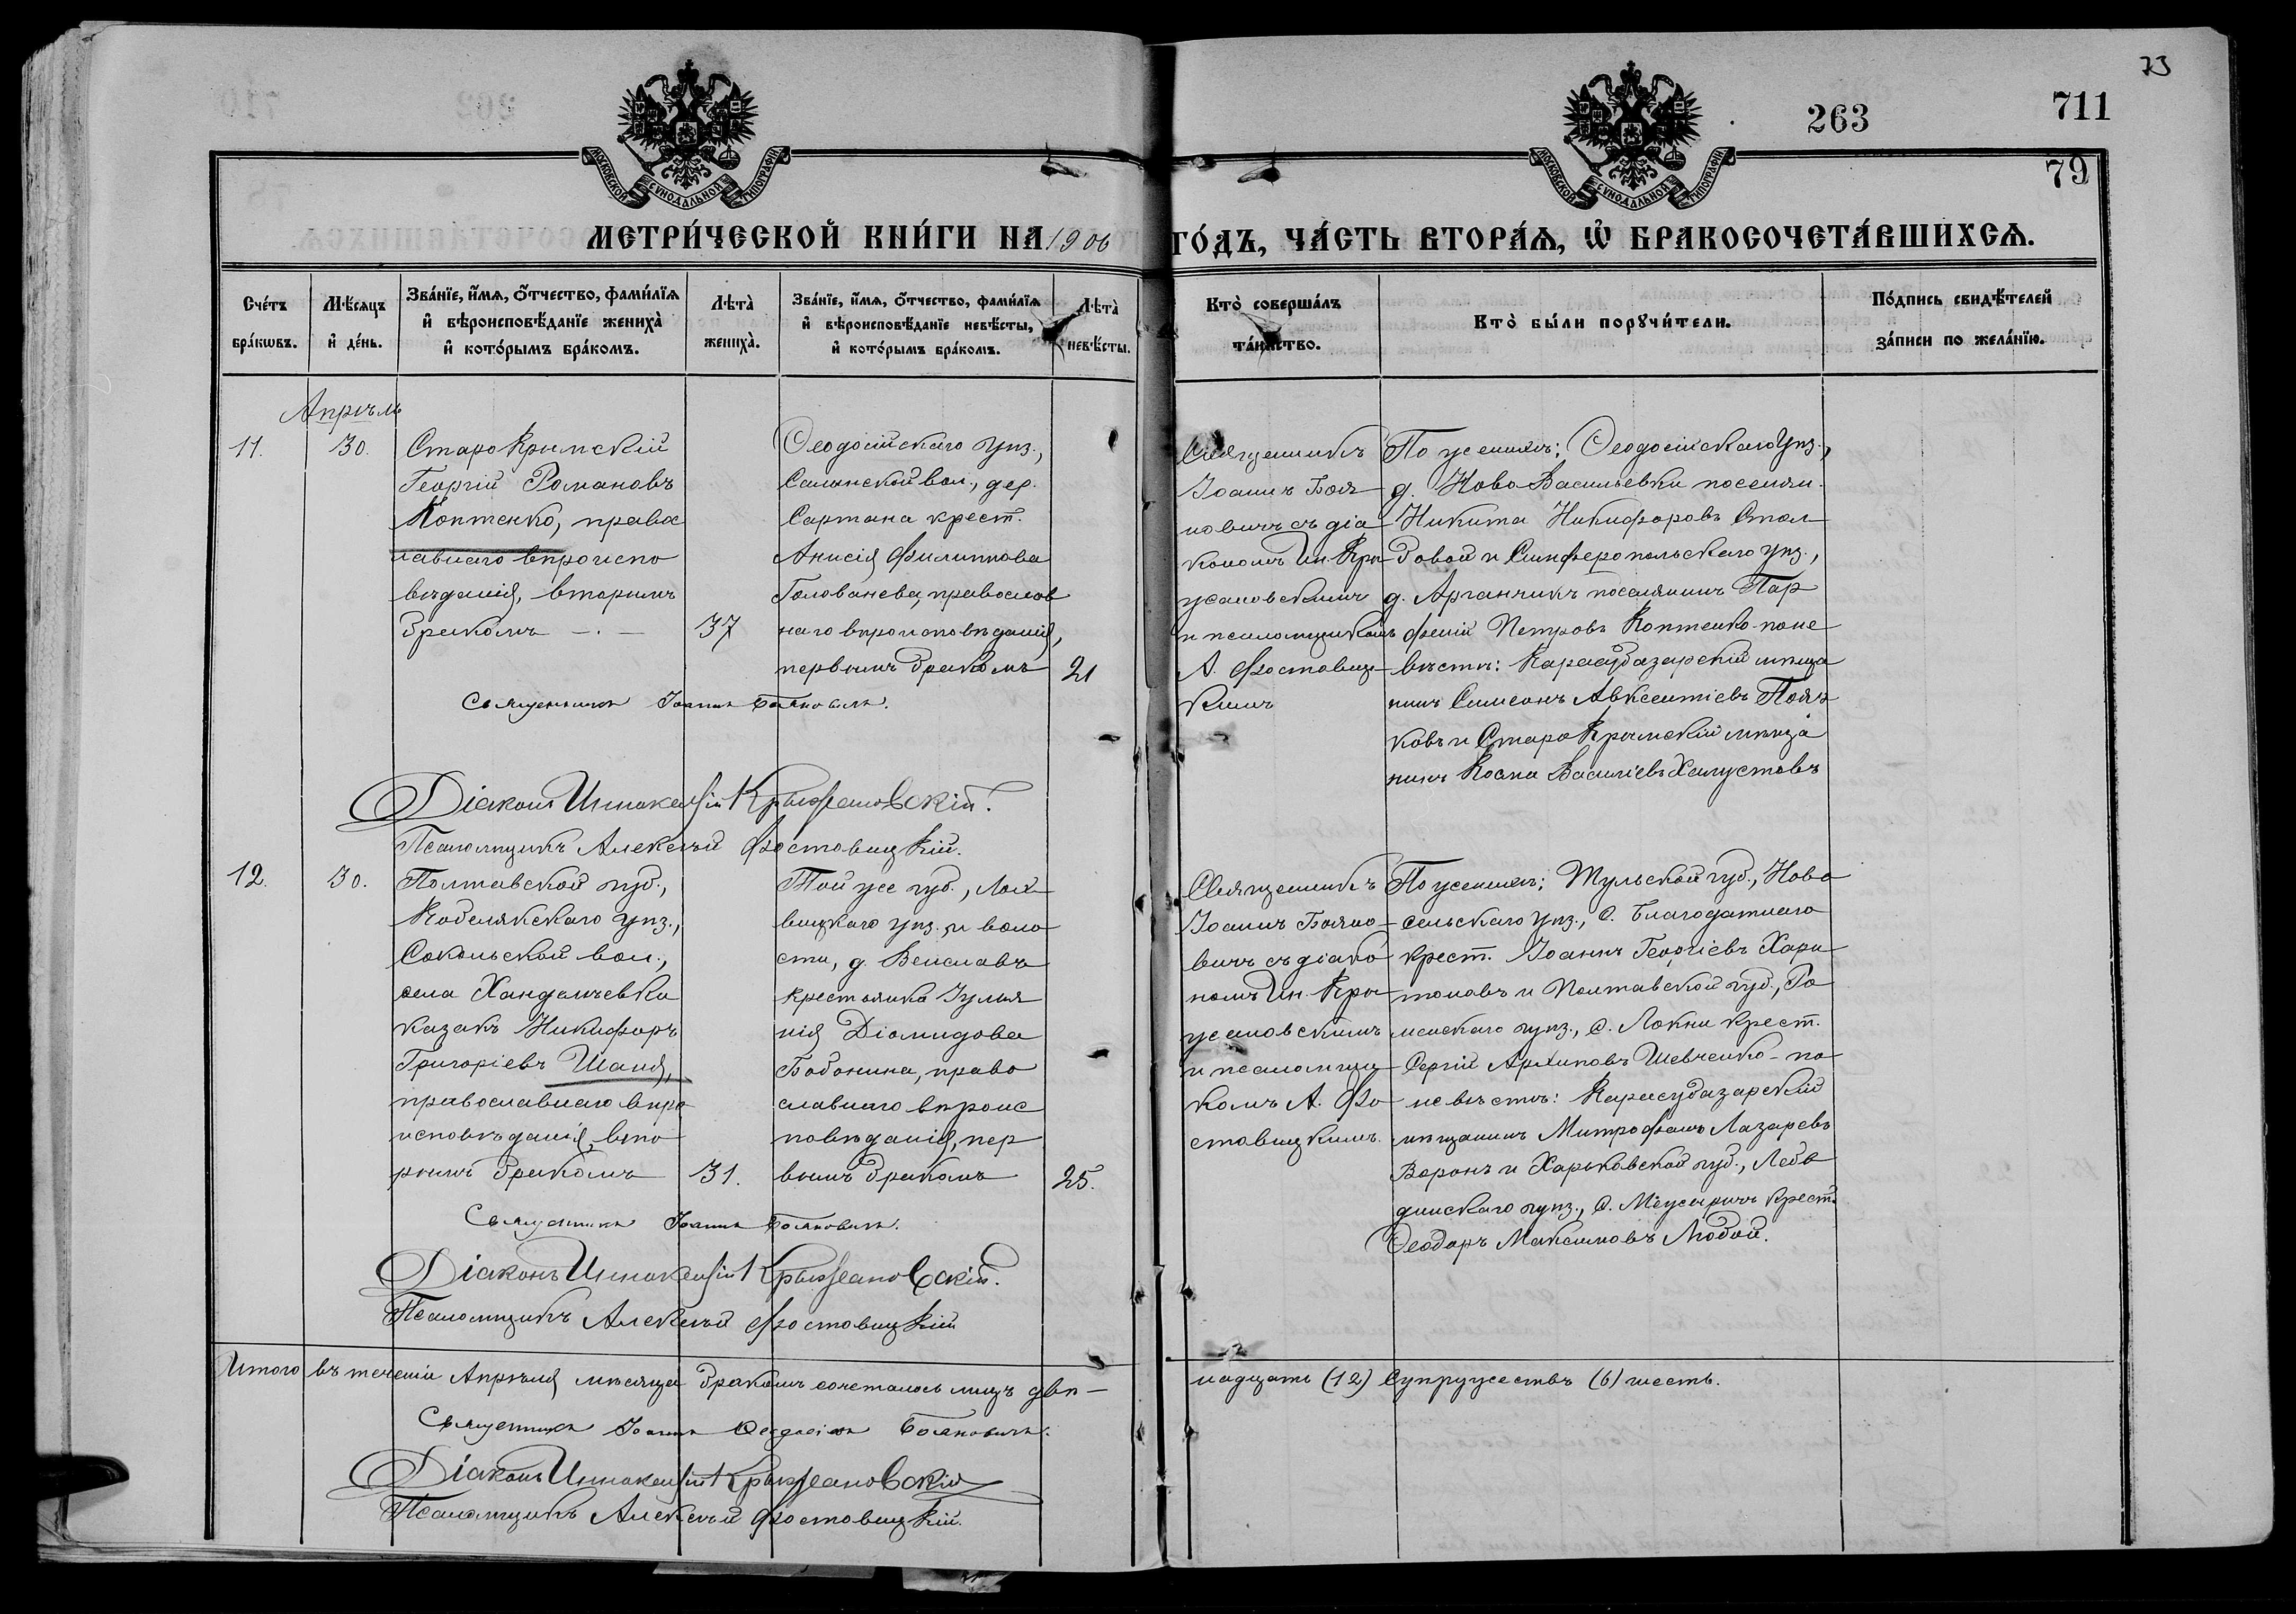 73
263
711
79
МОСКОВСКОЙ СѴНОДАЛЬНОЙ ТИПОГРАФІИ
МОСКОВСКОЙ СѴНОДАЛЬНОЙ ТИПОГРАФІИ
МЕТРИ́ЧЕСКОЙ КНИ́ГИ НА 1906 ГО́ДЪ, ЧА́СТЬ ВТОРА́Ѧ, Ѡ҆ БРАКОСОЧЕТА́ВШИХСѦ.
Сче́тъ
бра́кѡвъ.
Мѣ́сяцъ
и҆ де́нь.
Зва́нїе, и҆́мѧ, ѻ҆́тчество, фами́лїѧ
и҆ вѣроисповѣ́данїе жениха̀
и҆ кото́рымъ бра́комъ.
Лѣта̀
жениха̀.
Зва́нїе, и҆́мѧ, ѻ҆́тчество, фами́лїѧ
и҆ вѣроисповѣ́данїе невѣ́сты,
и҆ кото́рымъ бра́комъ.
Лѣта̀
невѣ́сты.
Кто̀ соверша́лъ
та́инство.
Кто̀ бы́ли порꙋчи́тели.
По́дпись свидѣ́телей
за́писи по жела́нїю.
Апрѣль
11.
30.
СтароКрымскій
Георгій Романовъ
Коптенко, право
славнаго вѣроиспо
вѣданія, вторымъ
бракомъ —.—
37
Ѳеодосійскаго уѣз.,
Салынской вол., дер.
Сартана крест.
Анисія Филиппова
Голованева, православ
наго вѣроисповѣданія,
первымъ бракомъ
21
Священникъ
Іоаннъ Боя
новичъ съ діа
кономъ Ин. Кры
жановскимъ
и псаломщикомъ
А. Фостовиц
кимъ
По женихѣ: Ѳеодосійскаго уѣз.,
д. НовоВасильевки поселян.
Никита Никифоровъ Стол
бовой и Симферопольскаго уѣз.,
д. Арганчикъ поселянинъ Пар
феній Петровъ Коптенко – поне
вѣстѣ: Карасубазарскій мѣща
нинъ Симеонъ Авксентіевъ Поля
ковъ и СтароКрымскій мѣща
нинъ Косма Василіевъ Халустовъ
Священникъ Іоаннъ Бояновичъ.
Діаконъ Иннокентій Крыжановскій.
Псаломщикъ Алексѣй Фостовицкій.
12.
30.
Полтавской губ.,
Кобелякскаго уѣз.,
Сокольской вол.,
села Хандалѣевки
казакъ Никифоръ
Григоріевъ Шаня,
православнаго вѣро
исповѣданія, вто
рымъ бракомъ
31.
Той же губ., Лох
вицкаго уѣз. и воло
сти, д. Веислава
крестьянка Іулья
нія Діомидова
Бабонина, право
славнаго вѣроис
повѣданія, пер
вымъ бракомъ
25.
Священникъ
Іоаннъ Бояно
вичъ съ діако
номъ Ин. Кры
жановскимъ
и псаломщи
комъ А. Фо
стовицкимъ.
По женихѣ: Тульской губ., Ново
сельскаго уѣз., с. Благодатнаго
крест. Іоаннъ Георгіевъ Хари
тоновъ и Полтавской губ., Ро
менскаго уѣз., с. Локни крест.
Сергій Архиповъ Шевченко – по
невѣстѣ: Карасубазарскій
мѣщанинъ Митрофанъ Лазаревъ
Воронъ и Харьковской губ., Лебе
динскаго уѣз., с. Межиричъ крест.
Ѳеодоръ Максимовъ Любой.
Священникъ Іоаннъ Бояновичъ.
Діаконъ Иннокентій Крыжановскій.
Псаломщикъ Алексѣй Фостовицкій
Итого въ теченіи Апрѣля мѣсяца бракомъ сочеталось лицъ двѣ–надцать (12) супружествъ (6) шесть.
Священникъ Іоаннъ Ѳеодосіевъ Бояновичъ.
Діаконъ Иннокентій Крыжановскій
Псаломщикъ Алексѣй Фостовицкій.